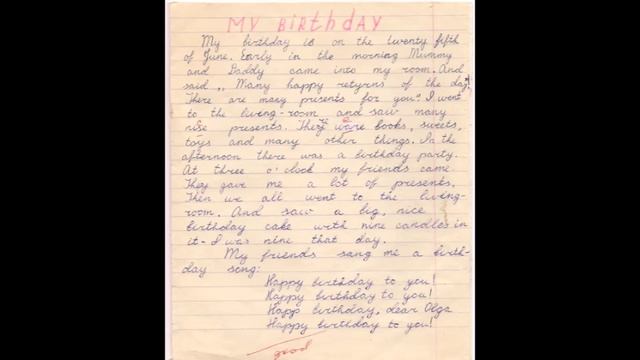 MY BIRthDAY
My birthday is on the twenty fifth
of June. Early in the morning Mummy
and Daddy came into my room. And
said „ Many happy returns of the day!
There are many presents for you." I went
to the living-room and saw many
nice presents. There were books, sweets,
toys and many other things. In the
afternoon there was a birthday party.
At three o'clock my friends came.
They gave me a lot of presents.
Then we all went to the living-
room. And saw a big, nice
birthday cake with nine candles in
it - I was nine that day.
My friends sang me a birth-
day song:
Happy birthday to you!
Happy birthday to you!
Happ birthday, dear Olga
Happy birthday to you!
good